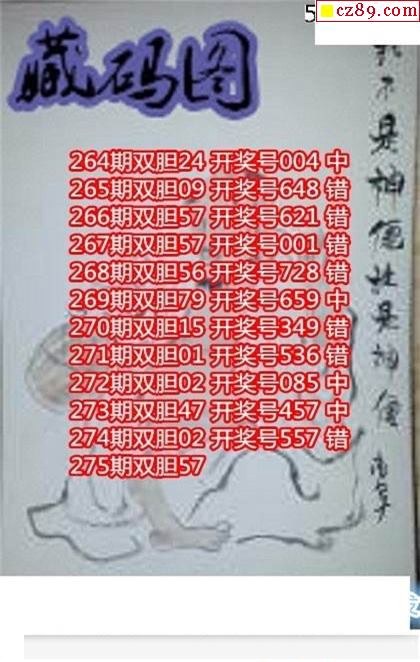 5
cz89.com
藏码图
264期双胆24 开奖号004 中
265期双胆09 开奖号648 错
266期双胆57 开奖号621 错
267期双胆57 开奖号001 错
268期双胆56 开奖号728 错
269期双胆79 开奖号659 中
270期双胆15 开奖号349 错
271期双胆01 开奖号536 错
272期双胆02 开奖号085 中
273期双胆47 开奖号457 中
274期双胆02 开奖号557 错
275期双胆57
不是神仙胜是神仙